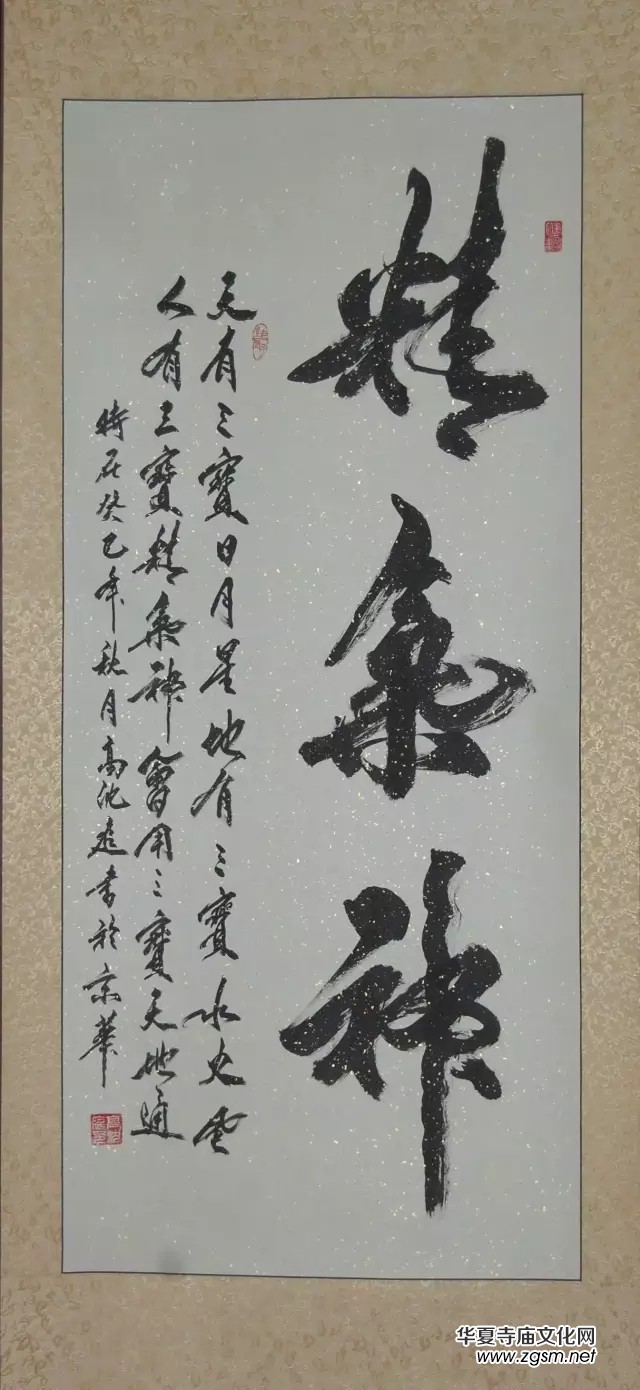 精氣神
天有三寶日月星地有三寶水火雲
人有三寶精氣神會用三寶天地通
時在癸巳年秋月高沈進書於京華
华夏寺庙文化网
www.zgsm.net